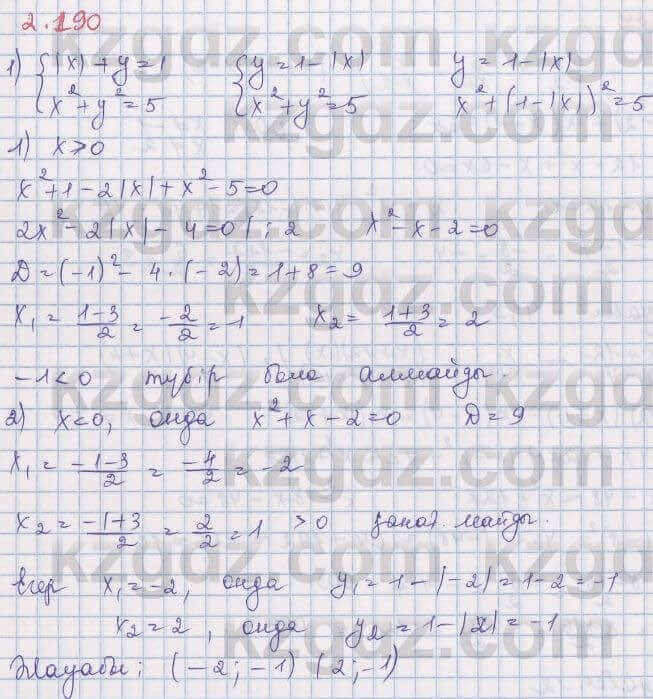 2.190
1) {|x| + y = 1 {y = 1 - |x| y = 1 - |x|
{x² + y² = 5 {x² + y² = 5 x² + (1 - |x|)² = 5
1) x ≥ 0
x² + 1 - 2|x| + x² - 5 = 0
2x² - 2|x| - 4 = 0 |: 2 x² - x - 2 = 0
D = (-1)² - 4 · (-2) = 1 + 8 = 9
x₁ = (1-3)/2 = -2/2 = -1 x₂ = (1+3)/2 = 2
-1 < 0 түбір бола алмайды.
2) x < 0, онда x² + x - 2 = 0 D = 9
x₁ = (-1-3)/2 = -4/2 = -2
x₂ = (-1+3)/2 = 2/2 = 1 > 0 қанағ. майды.
Егер x₁ = -2, онда y₁ = 1 - |-2| = 1 - 2 = -1
x₂ = 2, онда y₂ = 1 - |2| = -1
Жауабы: (-2; -1) (2; -1)
kzgdz.com